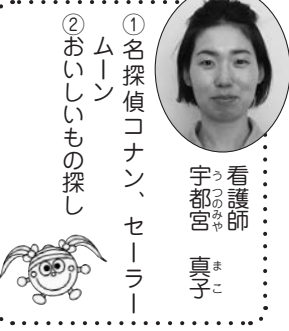 看護師
宇都宮 真子
うつのみや まこ
①名探偵コナン、セーラー
ムーン
②おいしいもの探し